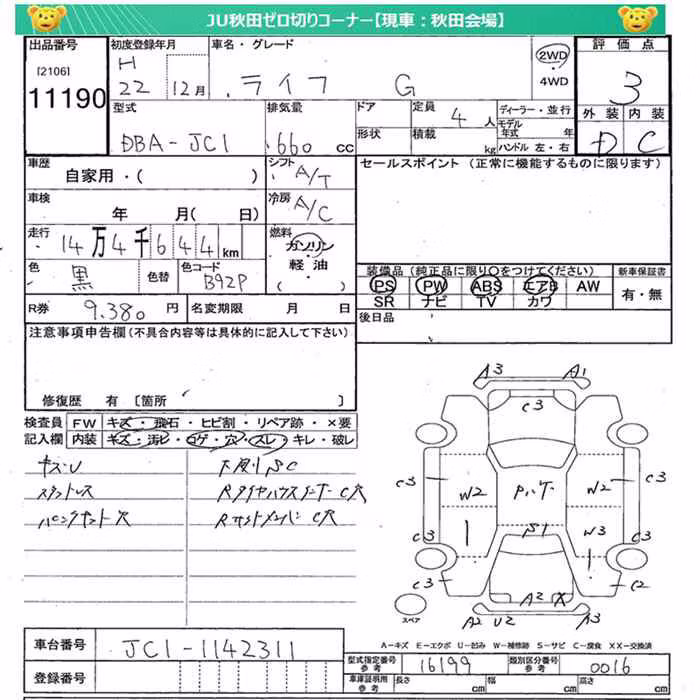 JU秋田ゼロ切りコーナー【現車：秋田会場】
出品番号 初度登録年月 車名・グレード 2WD 評価点
[2106] H ・4WD
11190 22 12月 ライフ G 3
型式 排気量 ドア 定員 4人 ディーラー・並行 外装 内装
DBA-JC1 660 CC 形状 積載 kg モデル年式 年 D C
ハンドル 左・右
車歴 シフト セールスポイント (正常に機能するものに限ります)
自家用・( ) A/T
車検 冷房
年 月( 日) A/C
走行 14万4千644km 燃料
ガソリン
色 色替 色コード 軽・油
黒 B92P ( )
装備品 (純正品に限り○をつけてください) 新車保証書
PS PW ABS エアB AW 有・無
SR ナビ TV カワ
R券 9.380 円 名変期限 月 日 後日品
注意事項申告欄(不具合内容等は具体的に記入して下さい)
修復歴 有 [箇所 ]
検査員 FW キズ・飛石・ヒビ割・リペア跡・×要
記入欄 内装 キズ・汚レ・コゲ・穴・スレ・キレ・破レ
キズ・U 下廻りSC
スタットレス RタイヤハウスインナーC穴
C穴
A3 A1
C3
C3 C3
W2 W2
S1
W3
C3 C2
A2 X
A2 U2 A3
スペア
A－キズ E－エクボ U－凹み W－補修跡 S－サビ C－腐食 XX－交換済
車台番号 JC1-1142311
型式指定番号 参考 16199 類別区分番号 参考 0016
登録番号
車庫証明用 参考 長さ cm 幅 cm 高さ cm